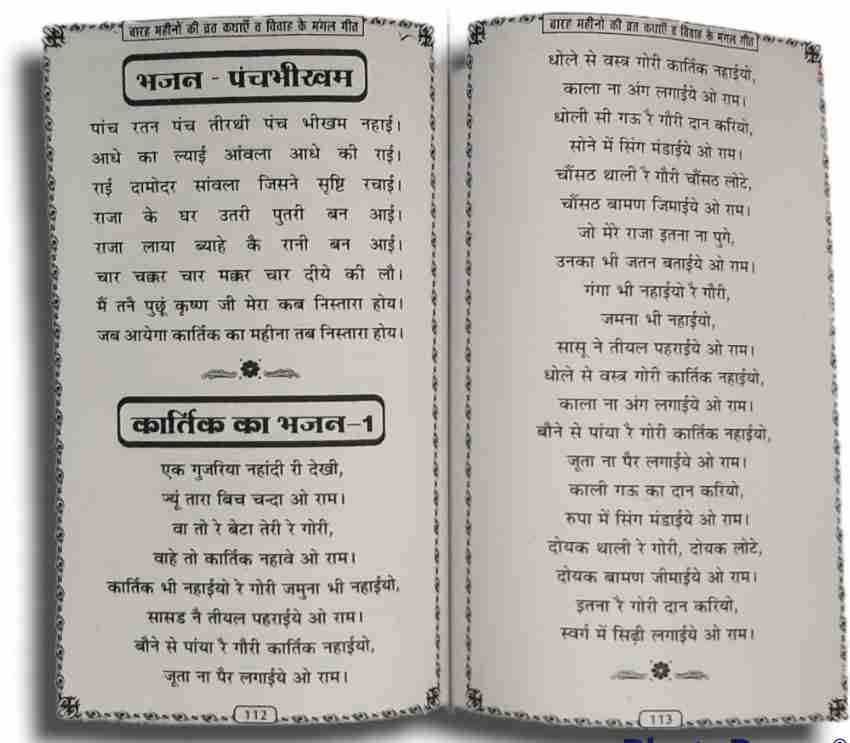 बारह महीनों की व्रत कथाएँ व विवाह के मंगल गीत
भजन - पंचभीखम
पांच रतन पंच तीरथी पंच भीखम नहाई।
आधे का ल्याई आंवला आधे की राई।
राई दामोदर सांवला जिसने सृष्टि रचाई।
राजा के घर उतरी पुतरी बन आई।
राजा लाया ब्याहे कै रानी बन आई।
चार चक्कर चार मक्कर चार दीये की लौ।
मैं तनै पुछूं कृष्ण जी मेरा कब निस्तारा होय।
जब आयेगा कार्तिक का महीना तब निस्तारा होय।
कार्तिक का भजन-1
एक गुजरिया नहांदी री देखी,
ज्यूं तारा बिच चन्दा ओ राम।
वा तो रे बेटा तेरी रे गोरी,
वाहे तो कार्तिक नहावे ओ राम।
कार्तिक भी नहाईयो रे गोरी जमुना भी नहाईयो,
सासड नै तीयल पहराईये ओ राम।
बौने से पांया रै गौरी कार्तिक नहाईयो,
जूता ना पैर लगाईये ओ राम।
112
बारह महीनों की व्रत कथाएँ व विवाह के मंगल गीत
धोले से वस्त्र गोरी कार्तिक नहाईयो,
काला ना अंग लगाईये ओ राम।
धोली सी गऊ रै गौरी दान करियो,
सोने में सिंग मंडाईये ओ राम।
चौंसठ थाली रै गौरी चौंसठ लोटे,
चौंसठ बामण जिमाईये ओ राम।
जो मेरे राजा इतना ना पुगे,
उनका भी जतन बताईये ओ राम।
गंगा भी नहाईयो रै गौरी,
जमना भी नहाईयो,
सासू ने तीयल पहराईये ओ राम।
धोले से वस्त्र गोरी कार्तिक नहाईयो,
काला ना अंग लगाईये ओ राम।
बौने से पांया रै गोरी कार्तिक नहाईयो,
जूता ना पैर लगाईये ओ राम।
काली गऊ का दान करियो,
रुपा में सिंग मंडाईये ओ राम।
दोयक थाली रे गोरी, दोयक लोटे,
दोयक बामण जीमाईये ओ राम।
इतना रै गोरी दान करियो,
स्वर्ग में सिढ़ी लगाईये ओ राम।
113